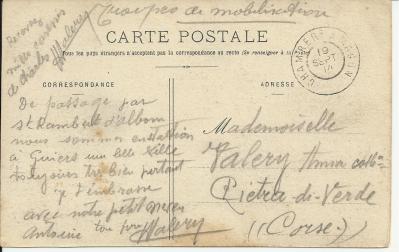 Troupes de mobilisation
Recevez
mille caresses
de
Valery
CARTE POSTALE
Tous les pays étrangers n'acceptent pas la correspondance au recto (Se renseigner à la
CORRESPONDANCE
ADRESSE
19
SEPT
14
De passage par
St Rambert d'Albon
nous sommes en station
à Guiers un belle ville
toujours très bien portant
je t'embrasse
avec notre petit
Antoine ton
Valery
Mademoiselle
Valery
Pietra-di-Verde
(Corse)